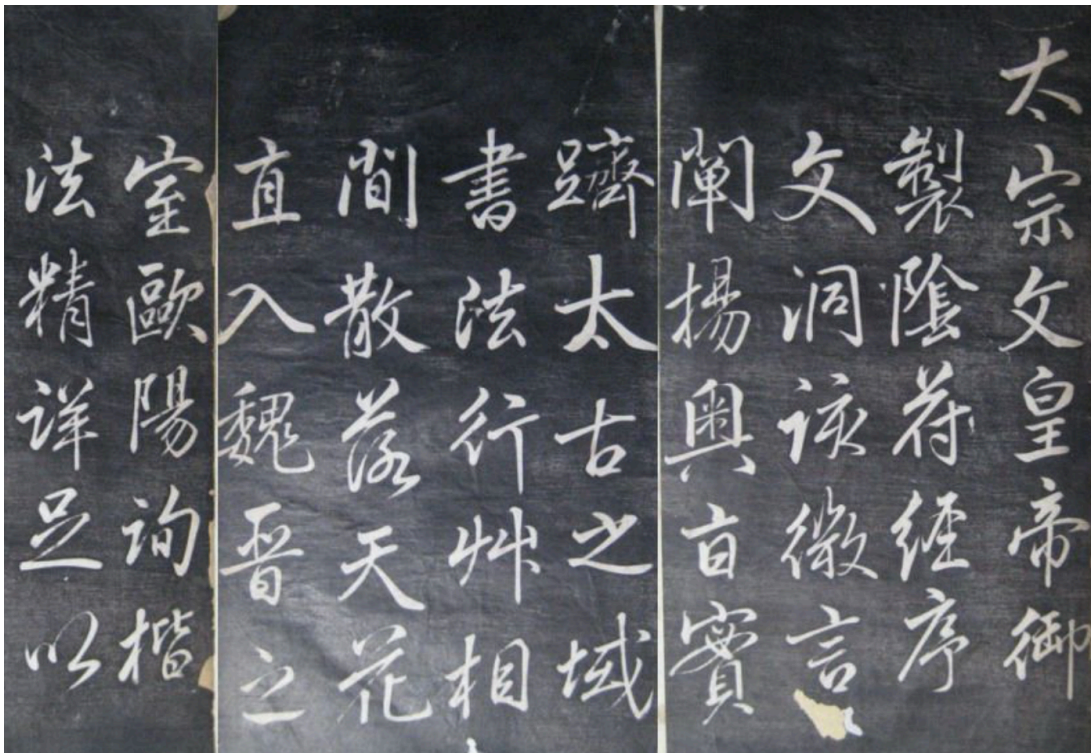 太宗文皇帝御
製陰符經序
文洞該微言
闡揚奧旨實
躋太古之域
書法行艸相
間散落天花
直入魏晉之
室歐陽詢楷
法精詳足以